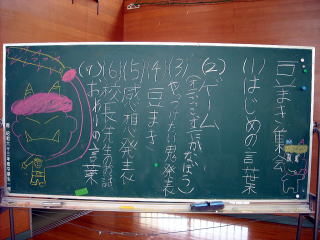 豆まき集会
(1)はじめの言葉
(2)ゲーム
(3)やっつけたい鬼発表
(4)豆まき
(5)感想発表
(6)校長先生のお話
(7)おわりの言葉